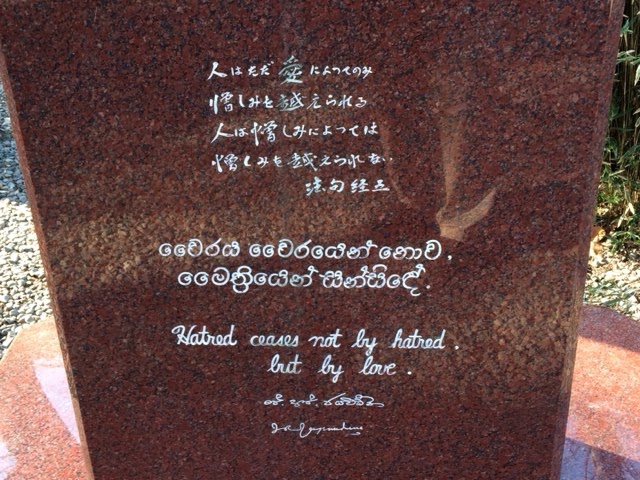 人はただ愛によってのみ
憎しみを越えられる
人は憎しみによっては
憎しみを越えられない
法句経五
වෛරය වෛරයෙන් නොව,
මෛත්‍රියෙන් සන්සිඳේ.
Hatred ceases not by hatred.
but by love.
ජේ. ආර්. ජයවර්ධන